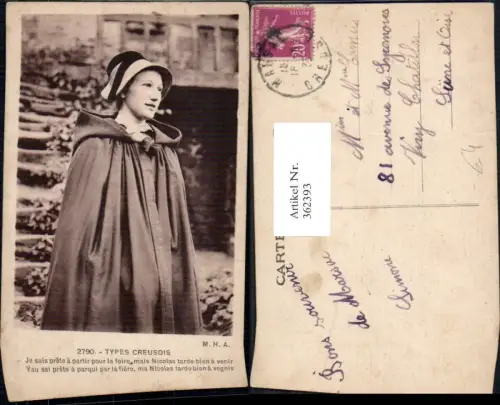 2790. - TYPES CREUSOIS
M. H. A.
Je suis prête à partir pour la foire, mais Nicolas tarde bien à venir
Yau sai prête à parqui par la fiéro, ma Nicolas tardo bien à vegnis
20
CREU
Artikel Nr.
362393
CARTE
et
81 avenue de
Seine et Oise
Bons souvenir
de
Simone